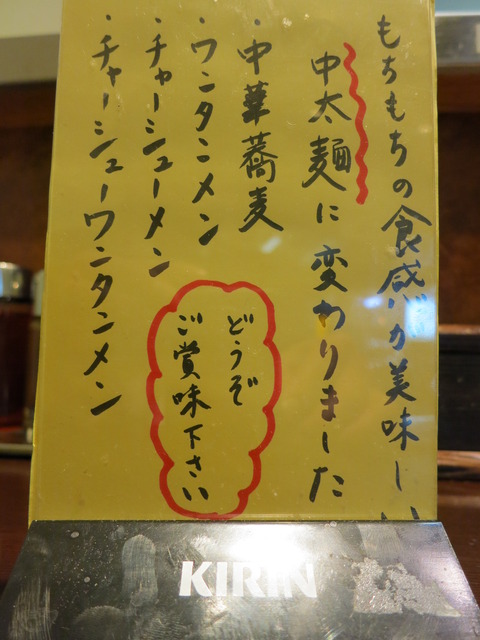 もちもちの食感が美味しい
中太麺に変わりました
・中華蕎麦
・ワンタンメン
・チャーシューメン
・チャーシューワンタンメン
どうぞ
ご賞味下さい
KIRIN